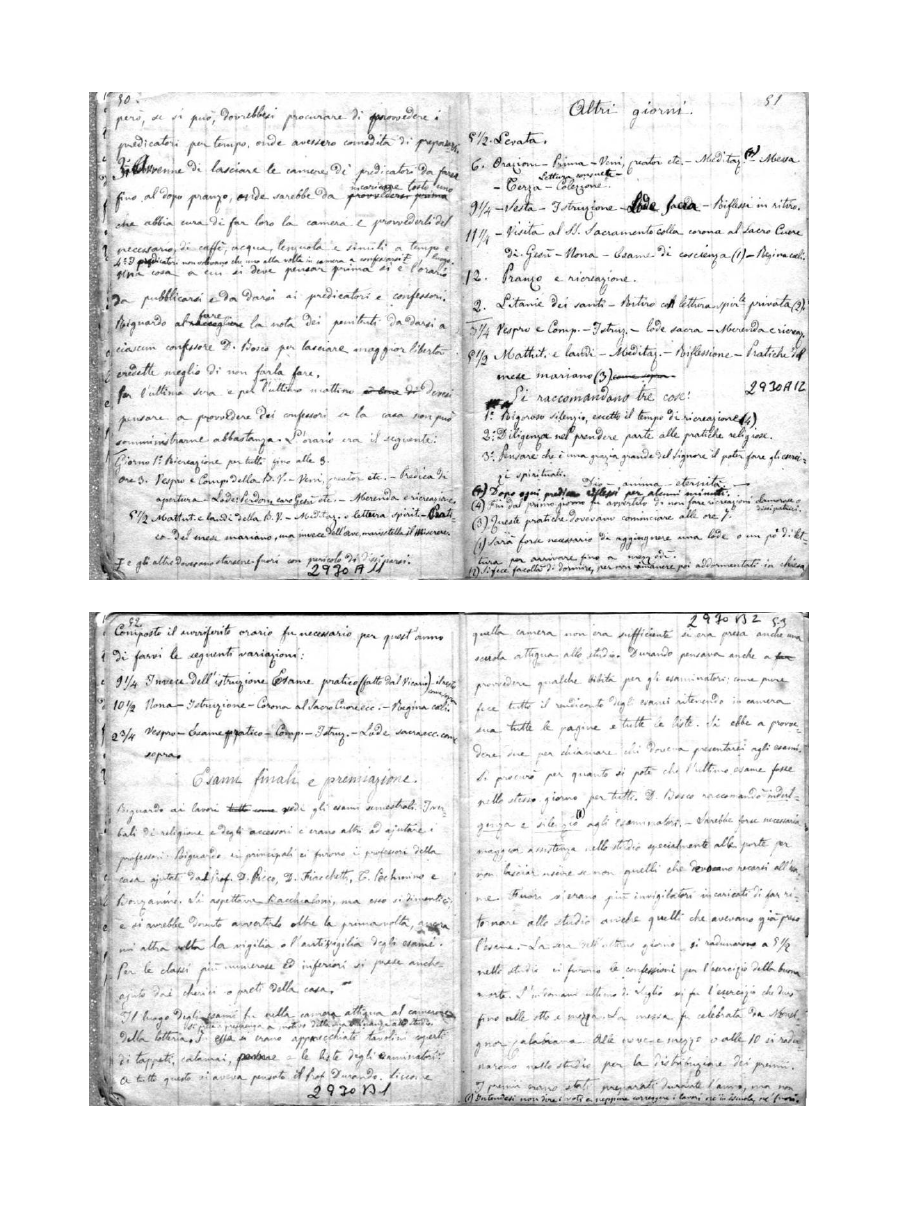 50.
però, se si può, dovrebbesi procurare di provvedere i
predicatori per tempo, onde avessero comodità di preparar
avvenne di lasciare le camere, di predicatori da farsi
fino al dopo pranzo, onde sarebbe da incaricare tosto uno
che abbia cura di far loro la camera e provvederli del
necessario, di caffè, acqua, lenzuola e simili a tempo e
tempo.
Una cosa a cui si deve pensare prima si è l'orario
da pubblicarsi e da darsi ai predicatori e confessori.
Riguardo al fare la nota dei penitenti da darsi a
ciascun confessore D. Bosco per lasciare maggior libertà
credette meglio di non farla fare.
Per l'ultima sera e per l'ultimo mattino devesi
pensare a provvedere dei confessori se la casa non può
somministrarne abbastanza. L'orario era il seguente:
Giorno 1º Ricreazione per tutti fino alle 3.
ore 3. Vespro e Comp. della B. V. - Veni, creator etc. - Predica di
apertura - Lode: Perdon, caro Gesù etc. - Merenda e ricreazione
5 1/2 Mattut. e laudi della B. V. - Meditaz. o lettura spirit. - Prati-
ca del mese mariano, ma invece dell'ave, maris stella il Miserere.
I e gli altri dovevano starsene fuori con pericolo di dissiparsi.
2930 A 11
51
Altri giorni.
5 1/2. Levata.
6. Orazioni - Prima - Veni, creator etc. - Meditaz. - Messa
- Terza - Colezione.
9 1/4 - Sesta - Istruzione - Lode sacra - Riflessi in ritiro.
11 1/4 - Visita al SS. Sacramento colla corona al Sacro Cuore
di Gesù - Nona - Esame di coscienza (1) - Regina coeli.
12. Pranzo e ricreazione.
2. Litanie dei santi - Ritiro con lettura spir.le privata (2).
3 1/4 Vespro e Comp. - Istruz. - lode sacra - Merenda e ricreaz.
5 1/2 Mattut. e laudi - Meditaz. - Riflessione - Pratiche del
mese mariano (3)
2930 A 12
Si raccomandano tre cose:
1ª Rigoroso silenzio, eccetto il tempo di ricreazione (4)
2ª Diligenza nel prendere parte alle pratiche religiose.
3ª Pensare che è una grazia grande del Signore il poter fare gli eserci-
zi spirituali.
Dio - anima - eternità.
Dopo ogni predica riflessi per alcuni minuti.
(4) Fin dal primo giorno fu avvertito di non fare ricreazioni clamorose o
dissipatrici.
(3) Queste pratiche dovevano cominciare alle ore 7.
(1) Sarà forse necessario di aggiungere una lode o un pò di let-
tura per arrivare fino a mezzodì.
(2) Si fece facoltà di dormire, per non rimanere poi addormentati in chiesa
52
Composto il surriferito orario fu necessario per quest'anno
di farvi le seguenti variazioni:
9 1/4 Invece dell'istruzione Esame pratico (fatto dal Vicario)
10 1/2 Nona - Istruzione - Corona al Sacro Cuore ecc. - Regina coeli.
2 3/4 Vespro - Esame pratico - Comp. - Istruz. - Lode sacra ecc. come
sopra.
Esame finale e premiazione.
Riguardo ai lavori vedi gli esami semestrali. I ver-
bali di religione e degli accessori e erano altri ad ajutare i
professori. Riguardo ai principali ci furono i professori della
casa ajutati dai prof. D. Picco, D. Fiacchetti, T. Pechenino e
Bonzanino. Si aspettava Bacchialoni, ma esso si dimenticò
e si avrebbe dovuto avvertirlo oltre la prima volta, ancora
un'altra volta la vigilia o l'antivigilia degli esami.
Per le classi più numerose ed inferiori si prese anche
ajuto dai chierici o preti della casa.
Il luogo degli esami fu nella camera attigua al camerone
della lotteria. erano apparecchiati tavolini coperti
di tappeti, calamai, penne e le liste degli esaminatori.
A tutto questo si aveva pensato il Prof. Durando. Siccome
2930 B 1
2930 B 2 53
quella camera non era sufficiente si era presa anche una
scuola attigua allo studio. Durando pensava anche a
provvedere qualche bibita per gli esaminatori; come pure
fece tutto il rendiconto degli esami ritenendo in camera
sua tutte le pagine e tutte le liste. Si ebbe a provve-
dere due per chiamare chi doveva presentarsi agli esami.
Si procurò per quanto si potè che l'ultimo esame fosse
nello stesso giorno per tutti. D. Bosco raccomandò indul-
genza e silenzio (1) agli esaminatori. - Sarebbe forse necessaria
maggior assistenza nello studio specialmente alle porte per
non lasciar uscire se non quelli che devono recarsi all'esa-
me. Fuori si erano più invigilatori incaricati di far ri-
tornare allo studio anche quelli che avevano già preso
l'esame. - La sera dell'ultimo giorno si radunarono a 5 1/2
nello studio ci furono le confessioni per l'esercizio della buona
morte. L'indomani ultimo di luglio si fu l'esercizio che durò
fino alle otto e mezza. La messa fu celebrata da Monsi-
gnor Alle nove e mezzo o alle 10 si radu-
narono nello studio per la distribuzione dei premii.
I premi erano stati preparati durante l'anno, ma non
(1) Intendesi non dire i voti e neppure correggere i lavori ora in iscuola, nè fuori.